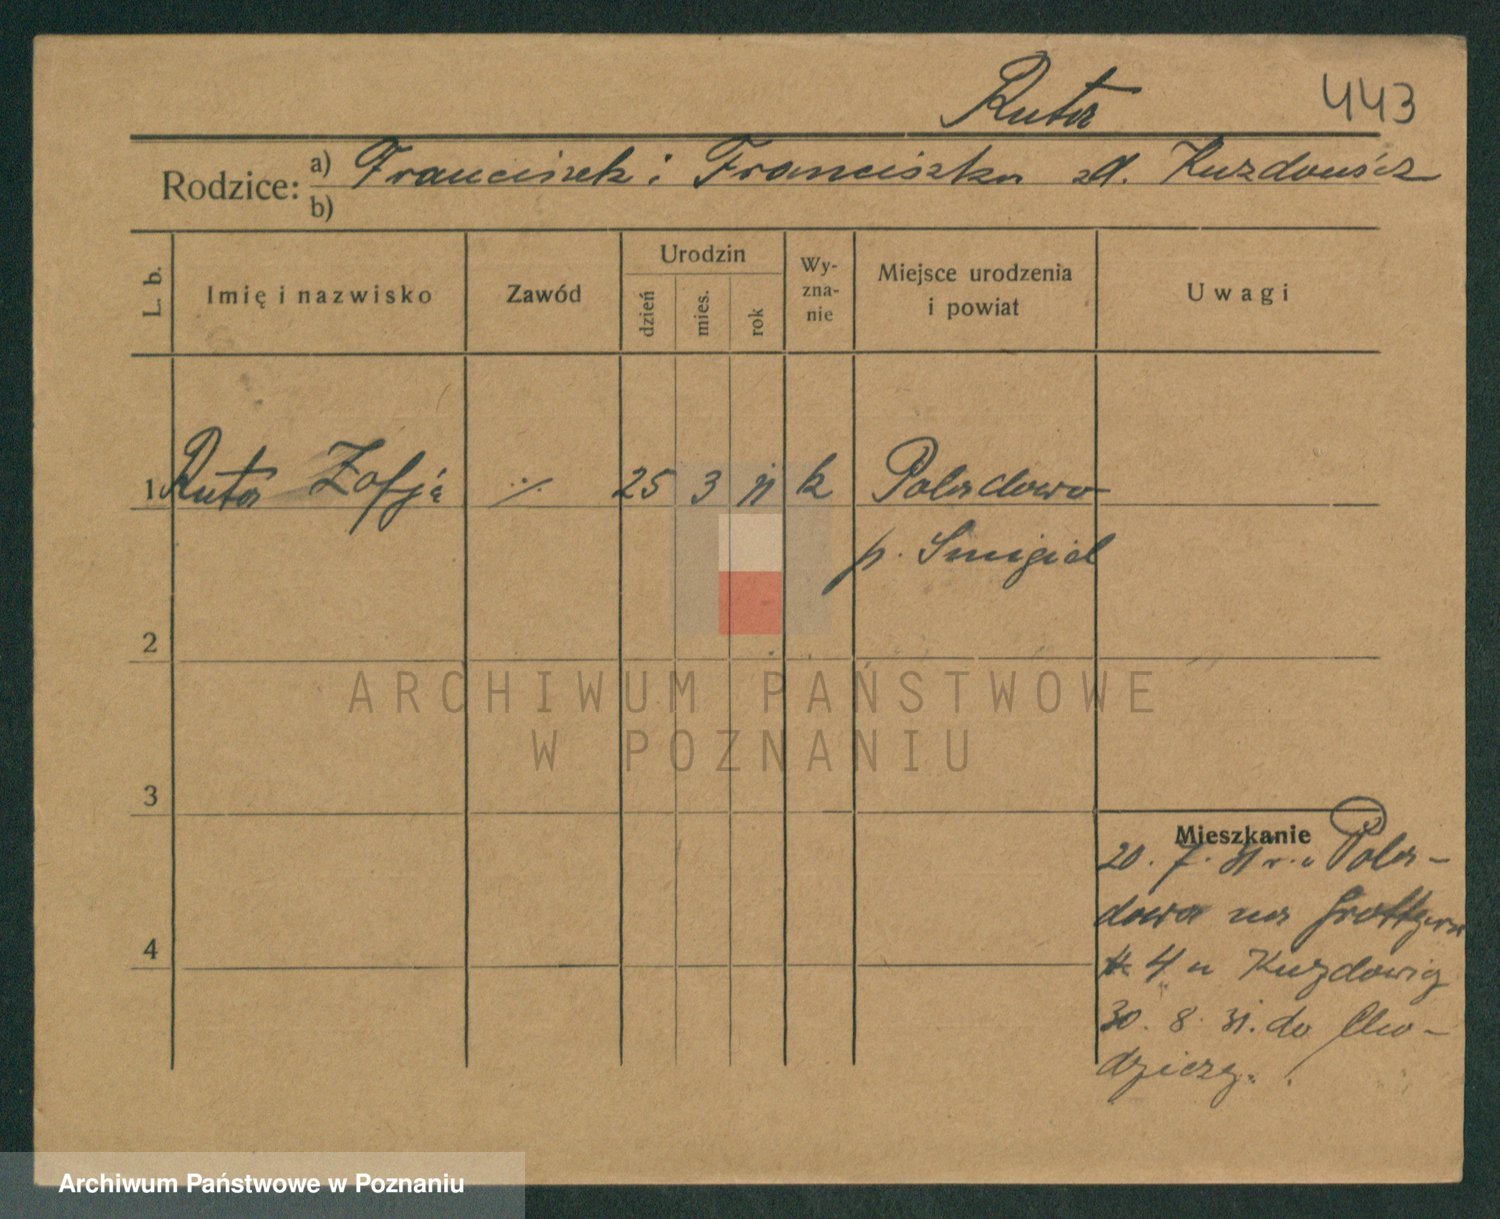 Ruta
443
Rodzice: a) Franciszek i Franciszka zd.
b)
L. b.
Imię i nazwisko
Zawód
Urodzin
dzień
mies.
rok
Wy-
zna-
nie
Miejsce urodzenia
i powiat
Uwagi
1 Ruta Zofja ./. 25 3 11 k Poladowo
p. Smigiel
2
3
4
Mieszkanie
20. 7. 31 r. Pola-
dowa na Grottgera
4 u
30. 8. 31. do Cho-
dzieży.
ARCHIWUM PAŃSTWOWE
W POZNANIU
Archiwum Państwowe w Poznaniu